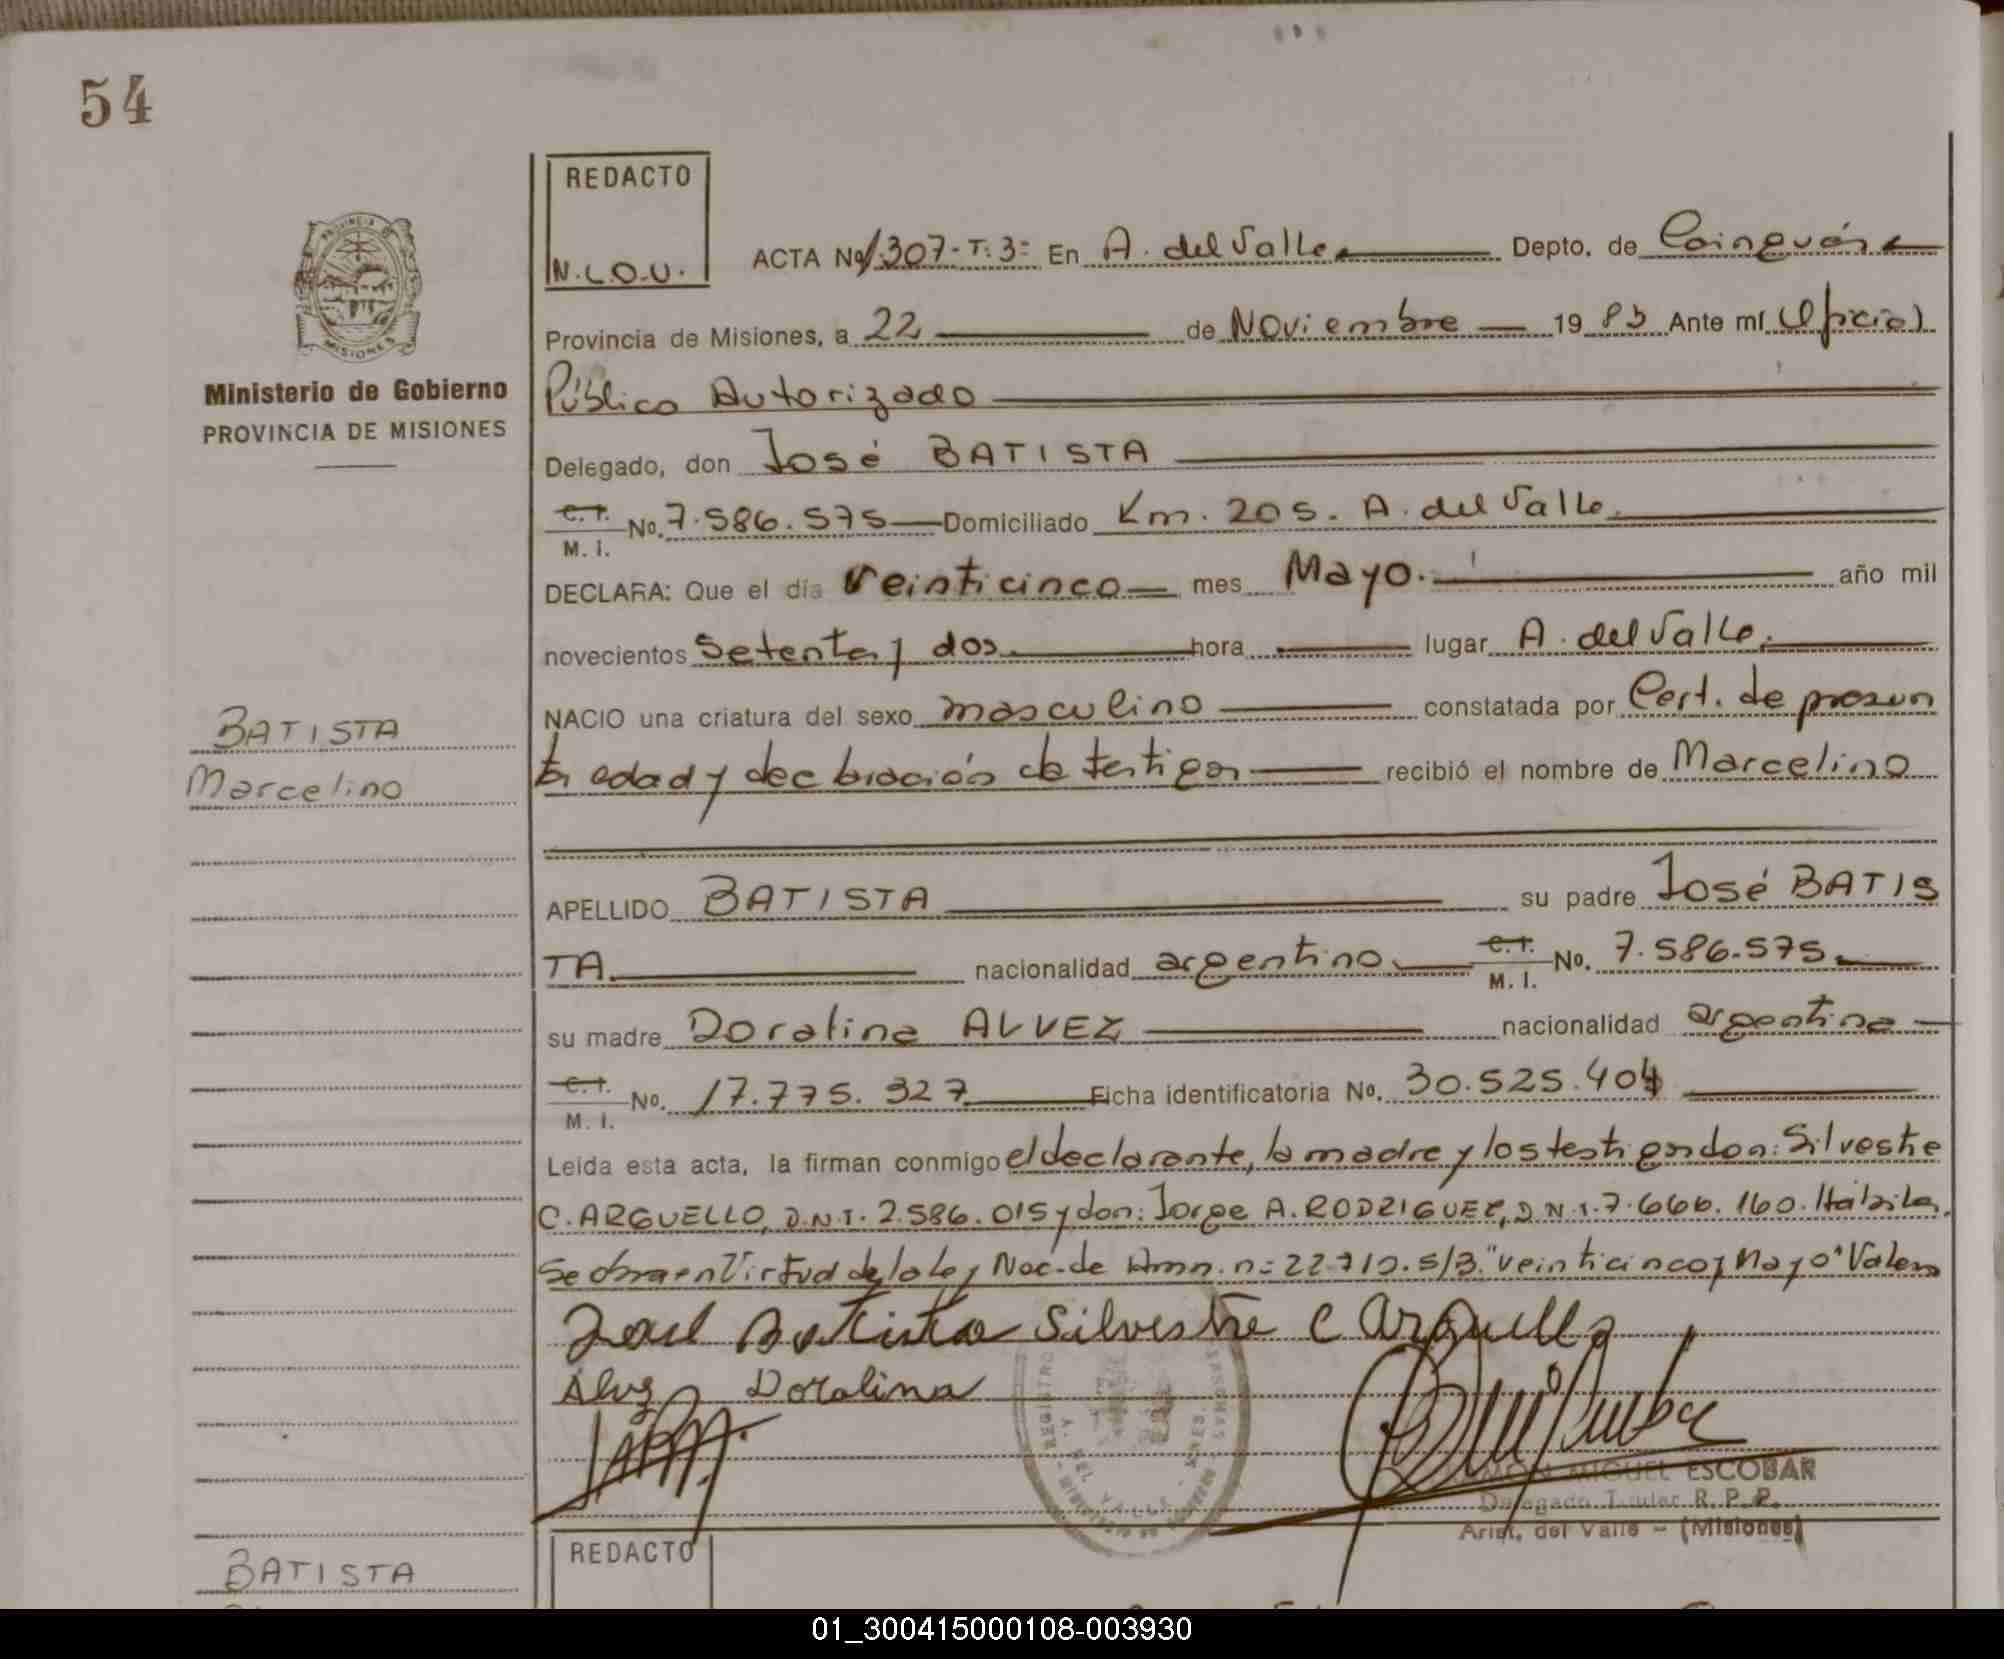 54
REDACTO
N.L.O.U.
PROVINCIA DE
MISIONES
Ministerio de Gobierno
PROVINCIA DE MISIONES
ACTA No 1.307-T:3= En A. del Valle Depto. de Cainguás
Provincia de Misiones, a 22 de Noviembre 1983 Ante mí Oficial
Público Autorizado
Delegado, don José BATISTA
C.I. M. I. No. 7.586.575 Domiciliado Km. 205. A. del Valle.
DECLARA: Que el día veinticinco mes Mayo. año mil
novecientos setenta y dos hora lugar A. del Valle.
NACIO una criatura del sexo masculino constatada por Cert. de presun
ta edad y declaración de testigos recibió el nombre de Marcelino
BATISTA
Marcelino
APELLIDO BATISTA su padre José BATIS
TA. nacionalidad argentino C.I. M. I. No. 7.586.575.
su madre Doralina ALVEZ nacionalidad argentina
C.I. M. I. No. 17.775.327 Ficha identificatoria No. 30.525.404
Leída esta acta, la firman conmigo el declarante, la madre y los testigos don: Silvestre
C. ARGUELLO, D.N.I. 2.586.015 y don: Jorge A. RODRIGUEZ, D.N.I. 7.666.160. Hábiles.
Se obra en Virtud de la Ley Nac. de Amn. n= 22.710. S/B. "veinticinco y Mayo" Valen
José Batista Silvestre C Arguello
Alvez Doralina
MIGUEL ESCOBAR
Delegado Titular R. P. P.
Arist. del Valle - (Misiones)
REDACTO
BATISTA
01_300415000108-003930